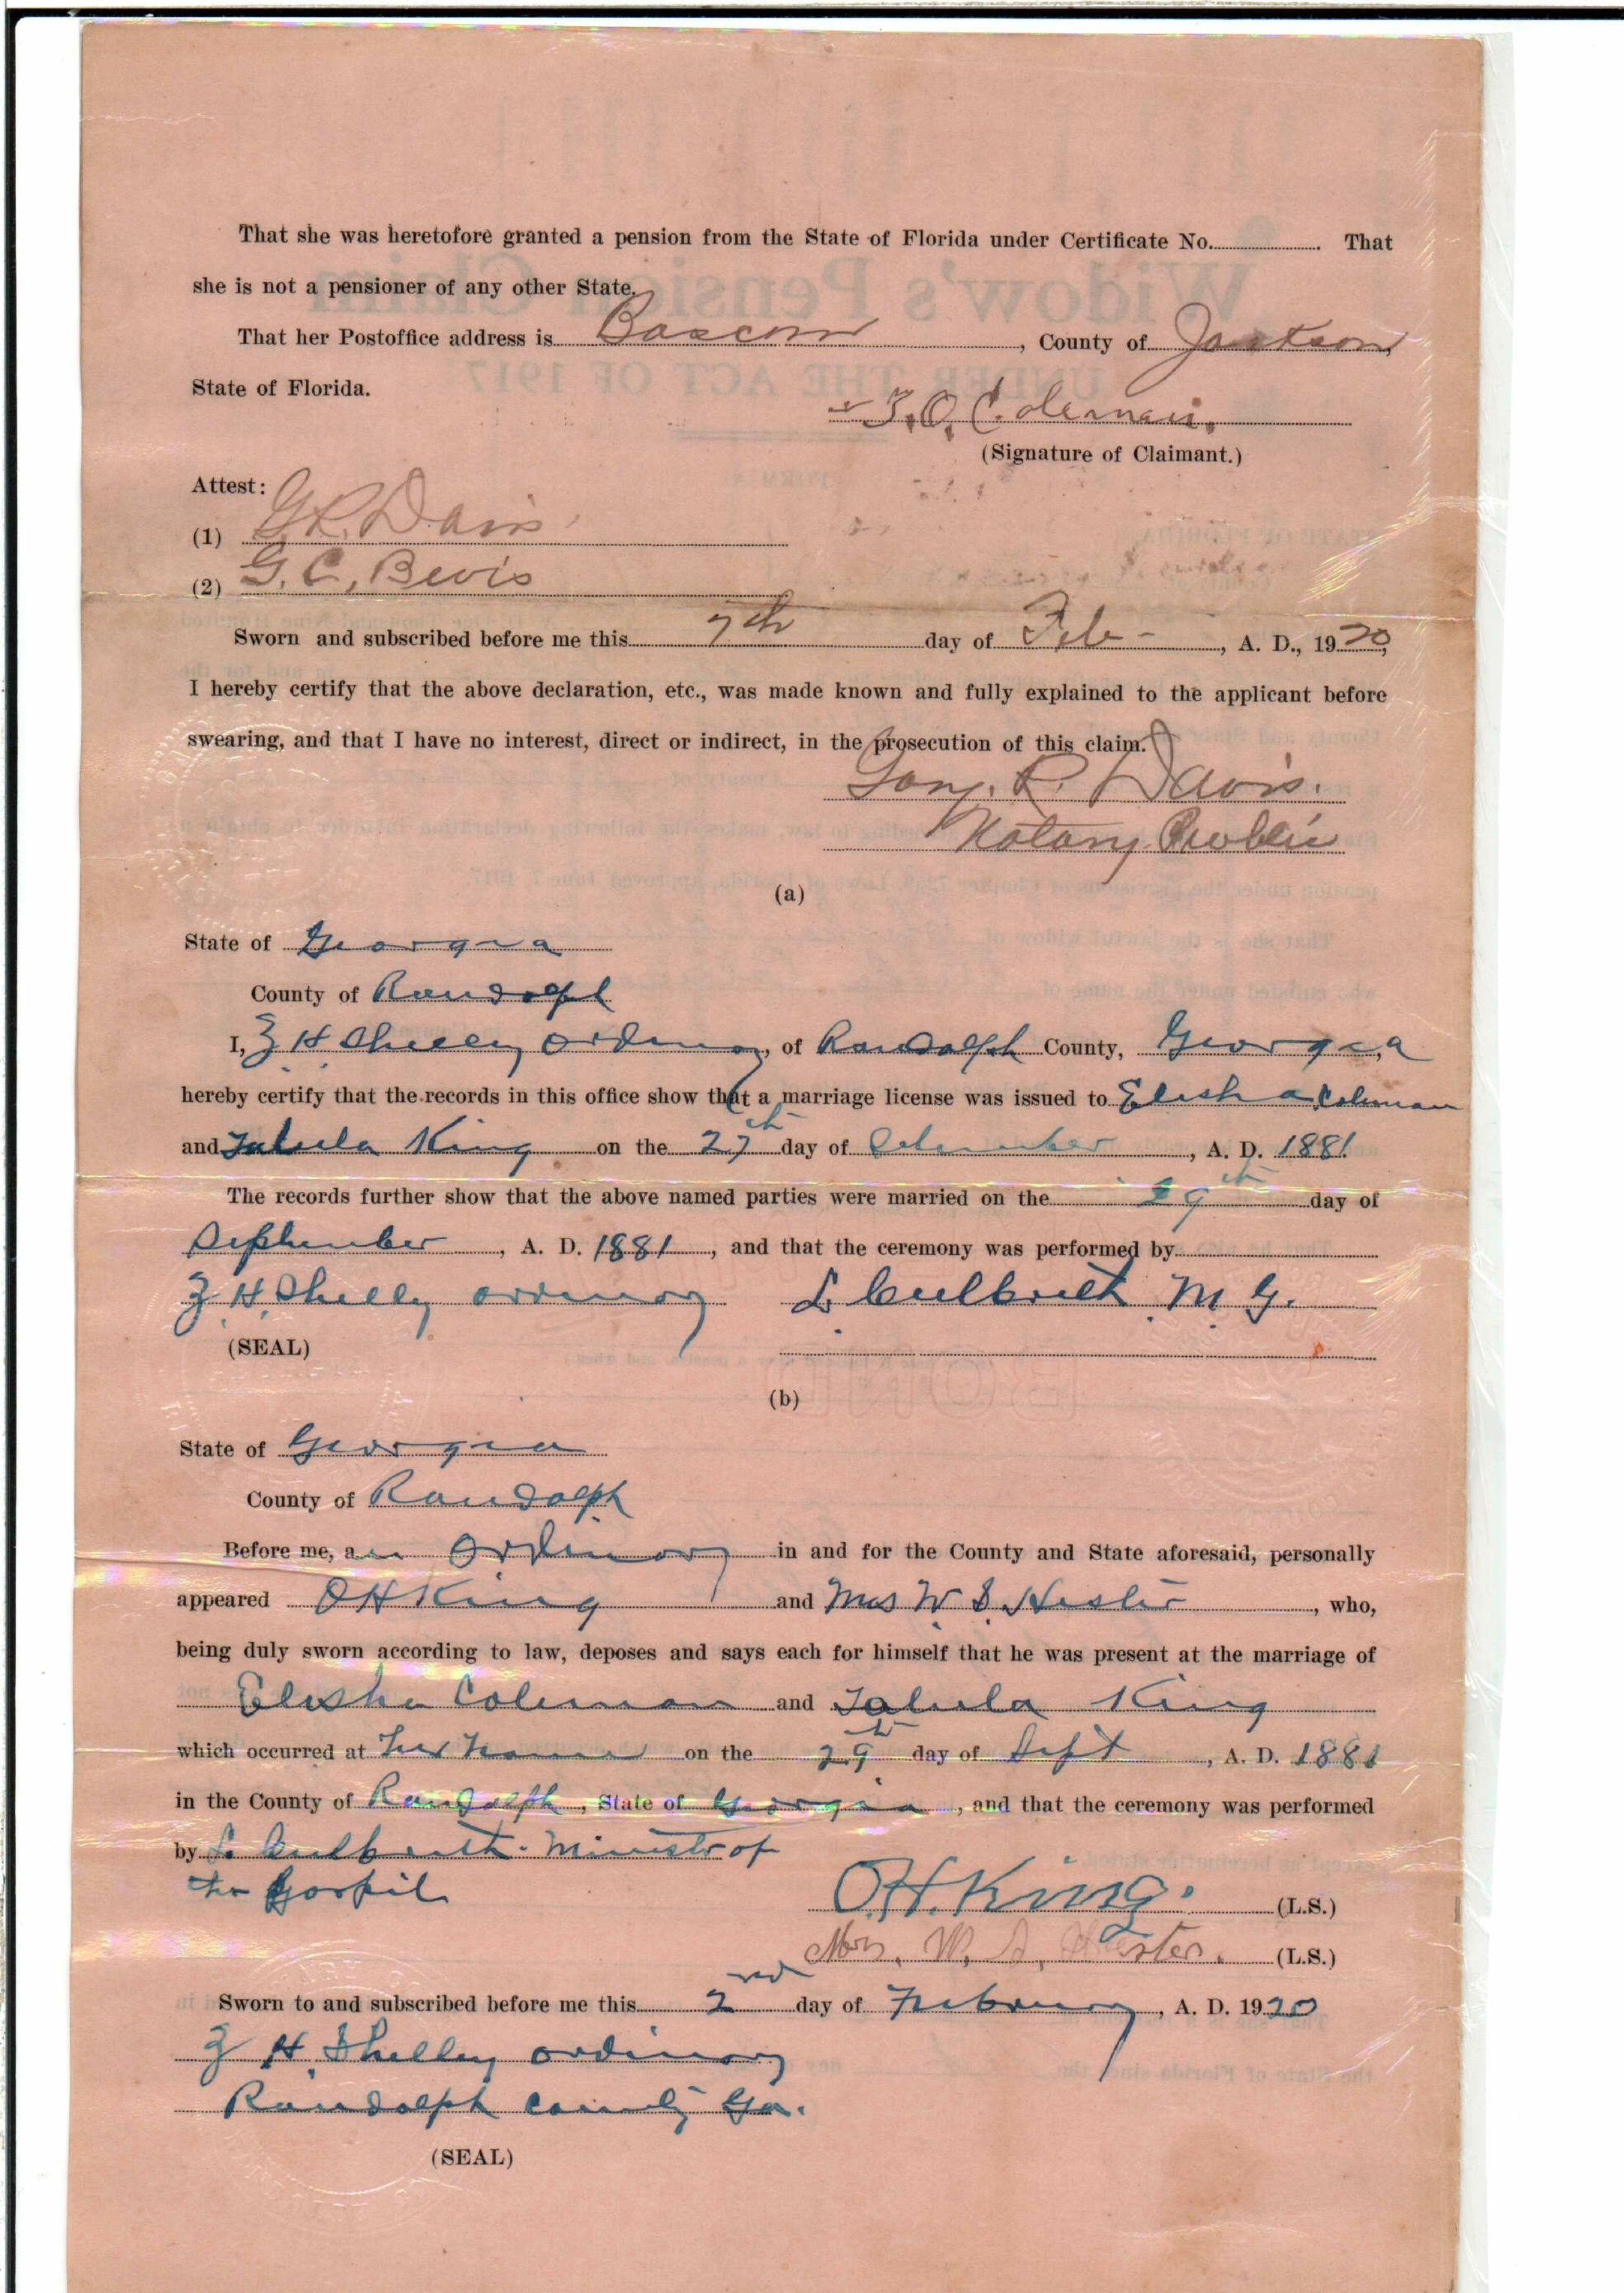 That she was heretofore granted a pension from the State of Florida under Certificate No. . That
she is not a pensioner of any other State.
That her Postoffice address is Bascom, County of Jackson,
State of Florida.
T. O. Coleman.
(Signature of Claimant.)
Attest:
(1) G R Davis
(2) G. C. Bevis
Sworn and subscribed before me this 7th day of Feb -, A. D., 1920,
I hereby certify that the above declaration, etc., was made known and fully explained to the applicant before
swearing, and that I have no interest, direct or indirect, in the prosecution of this claim.
R. Davis.
Notary Public
(a)
State of Georgia
County of Randolph
I, Z H Shelley ordinary, of Randolph County, Georgia,
hereby certify that the records in this office show that a marriage license was issued to Elisha Coleman
and Tabula King on the 27th day of , A. D. 1881
The records further show that the above named parties were married on the 29th day of
September, A. D. 1881, and that the ceremony was performed by
Z. H. Shelley ordinary L. Culbreth M. G.
(SEAL)
(b)
State of Georgia
County of Randolph
Before me, an Ordinary in and for the County and State aforesaid, personally
appeared O H King and Mrs W. S. Hester, who,
being duly sworn according to law, deposes and says each for himself that he was present at the marriage of
Elisha Coleman and Tabula King
which occurred at her home on the 29th day of Sept, A. D. 1881
in the County of Randolph, State of Georgia, and that the ceremony was performed
by L. Culbreth. Minister of
the Gospil
O. H. King. (L.S.)
Mrs. W. S. Hester. (L.S.)
Sworn to and subscribed before me this 2nd day of February, A. D. 1920
Z H. Shelley ordinary
Randolph County Ga.
(SEAL)